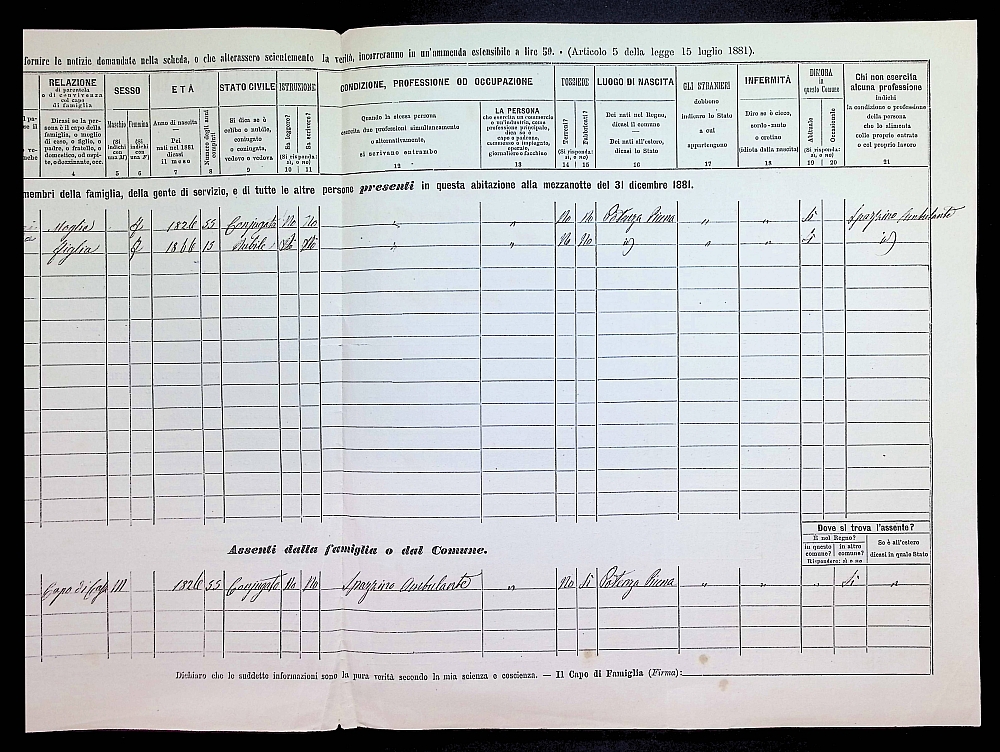 fornire le notizie domandate nella scheda, o che alterassero scientemente la verità, incorreranno in un'ammenda estensibile a lire 50. - (Articolo 5 della legge 15 luglio 1881).
RELAZIONE
di parentela
o di convivenza
col capo
di famiglia
Dicasi se la per-
sona è il capo della
famiglia, o moglie
di esso, o figlio, o
padre, o fratello, o
domestico, od ospi-
te, o dozzinante, ecc.
4
SESSO
Maschio
(Si
indichi
con
una M)
5
Femmina
(Si
indichi
con
una F)
6
ETÀ
Anno di nascita
Pei
nati nel 1881
dicasi
il mese
7
Numero degli anni
compiuti
8
STATO CIVILE
Si dica se è
celibe o nubile,
coniugato
o coniugata,
vedovo o vedova
9
ISTRUZIONE
Sa leggere?
Sa scrivere?
(Si risponda:
sì, o no)
10 11
CONDIZIONE, PROFESSIONE OD OCCUPAZIONE
Quando la stessa persona
esercita due professioni simultaneamente
o alternativamente,
si scrivano entrambe
12
LA PERSONA
che esercita un commercio
o un'industria, come
professione principale,
dica se è
capo o padrone,
commesso o impiegato,
operaio,
giornaliero o facchino
13
POSSIEDE
Terreni?
Fabbricati?
(Si risponda:
sì, o no)
14 15
LUOGO DI NASCITA
Dei nati nel Regno,
dicasi il comune
Dei nati all'estero,
dicasi lo Stato
16
GLI STRANIERI
debbono
indicare lo Stato
a cui
appartengono
17
INFERMITÀ
Dire se è cieco,
sordo-muto
o cretino
(idiota dalla nascita)
18
DIMORA
in
questo Comune
Abituale
Occasionale
(Si risponda:
sì, o no)
19 20
Chi non esercita
alcuna professione
indichi
la condizione o professione
della persona
che lo alimenta
colle proprie entrate
o col proprio lavoro
21
membri della famiglia, della gente di servizio, e di tutte le altre persone presenti in questa abitazione alla mezzanotte del 31 dicembre 1881.
Moglie F 1826 55 Conjugata No No " " No No Potenza Picena " " Si Spazzino Ambulante
Figlia F 1866 15 Nubile No No " " No No id " " Si id
Assenti dalla famiglia o dal Comune.
Dove si trova l'assente?
È nel Regno?
in questo
comune?
in altro
comune?
Rispondere: sì o no
Se è all'estero
dicasi in quale Stato
Capo di Casa M 1826 55 Conjugato No No Spazzino Ambulante " No Si Potenza Picena " " " Si "
Dichiaro che le suddette informazioni sono la pura verità secondo la mia scienza e coscienza. — Il Capo di Famiglia (Firma):